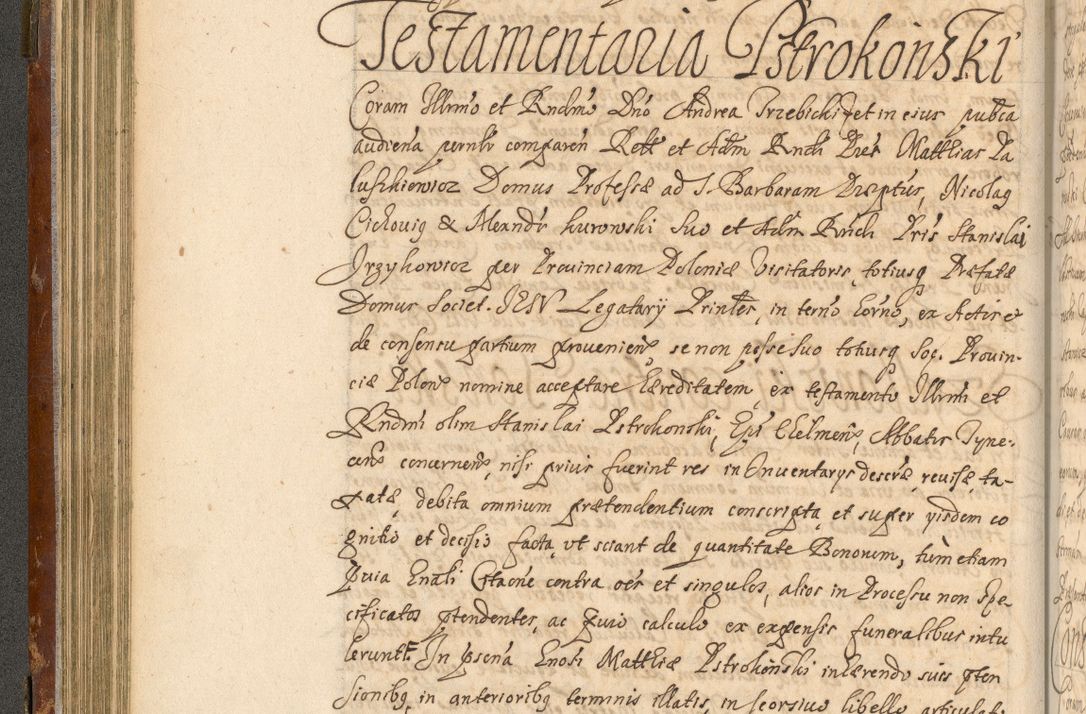 Testamentaria Pstrokoński
Coram Illmo et Rndmo Dno Andrea Trzebicki et in eius pubca
audiena psnlr comparen Relt et Adm Rndi Pres Matthias Pa
luszkiewicz Domus Professæ ad S. Barbaram Præptus, Nicolaq
Cichovig & Alexandr Kurowski suo et Adm Rndi Pris Stanislai
Jrzykowicz per Provinciam Poloniæ Visitatoris totiusq Præfatæ
Domus Societ. JESV Legatarij Printer, in termo horno, ex Actis et
de consensu partium provenien, se non posse suo totiusq Soc. Provin-
ciæ Polonæ nomine acceptare hæreditatem, ex testamento Illrmi et
Rndmi olim Stanislai Pstrokonski, Epi Chelmen, Abbatis Tyne-
cen concernen, nisi prius fuerint res in Inventarys descræ, revisæ, ta-
xatæ, debita omnium prætendentium conscripta, et super yisdem co
gnitio et decisio facta, ut sciant de quantitate Bonorum, tum etiam
quia Enali Citaone contra oes et singulos, alios in Processu non spe-
cificatos ptendentes, ac quio calculo ex expensis funeralibus intu
lerunt. In psena Enosi Matthiæ Pstrokonski inhærendo suis pten
sionibq, in anterioribq terminis illatis, in seorsivo libello articulat